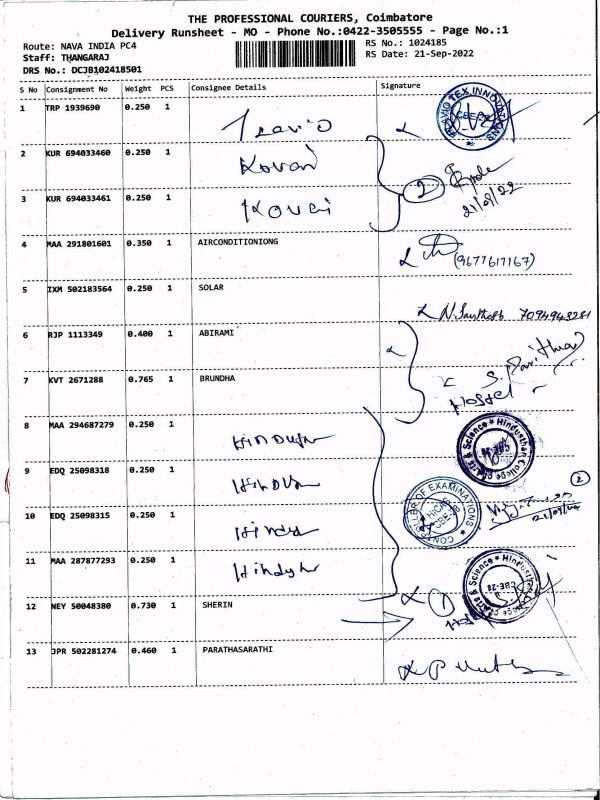 THE PROFESSIONAL COURIERS, Coimbatore
Delivery Runsheet - MO - Phone No.:0422-3505555 - Page No.:1
Route: NAVA INDIA PC4 RS No.: 1024185
Staff: THANGARAJ RS Date: 21-Sep-2022
DRS No.: DCJB102418501
S No Consignment No Weight PCS Consignee Details Signature
1 TRP 1939690 0.250 1
FLAVIO TEX INNOVATIONS
2 KUR 694033460 0.250 1 Kovai
2
21/09/22
3 KUR 694033461 0.250 1 Kovai
4 MAA 291801601 0.350 1 AIRCONDITIONIONG
(9677617167)
5 IXM 502183564 0.250 1 SOLAR
7094943281
6 RJP 1113349 0.400 1 ABIRAMI
7 KVT 2671288 0.765 1 BRUNDHA
Hostel
8 MAA 294687279 0.250 1
Hindusthan College of Arts & Science
9 EDQ 25098318 0.250 1
2
CONTROLLER OF EXAMINATIONS
HICAS
CBE-28
10 EDQ 25098315 0.250 1
11 MAA 287877293 0.250 1
Hindusthan College of Arts & Science
CBE-28
12 NEY 50048380 0.730 1 SHERIN
1
13 JPR 502281274 0.460 1 PARATHASARATHI